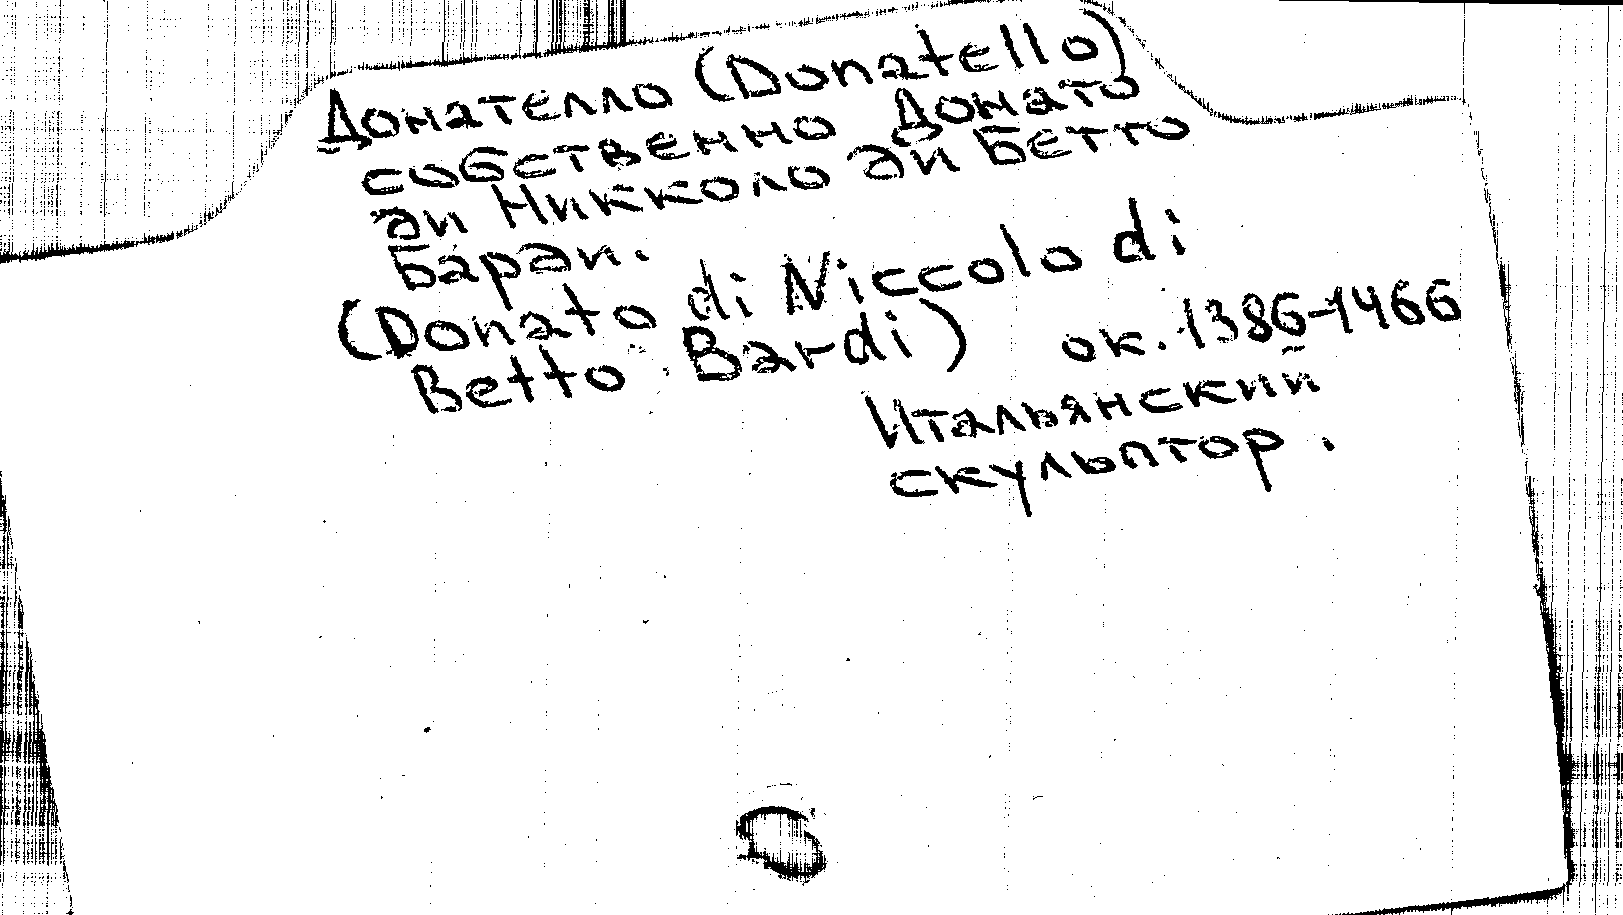 Донателло (Donatello)
собственно Донато
ди Никколо ди Бетто
Барди.
(Donato di Niccolo di
Betto Bardi) ок. 1386-1466
Итальянский
скульптор.